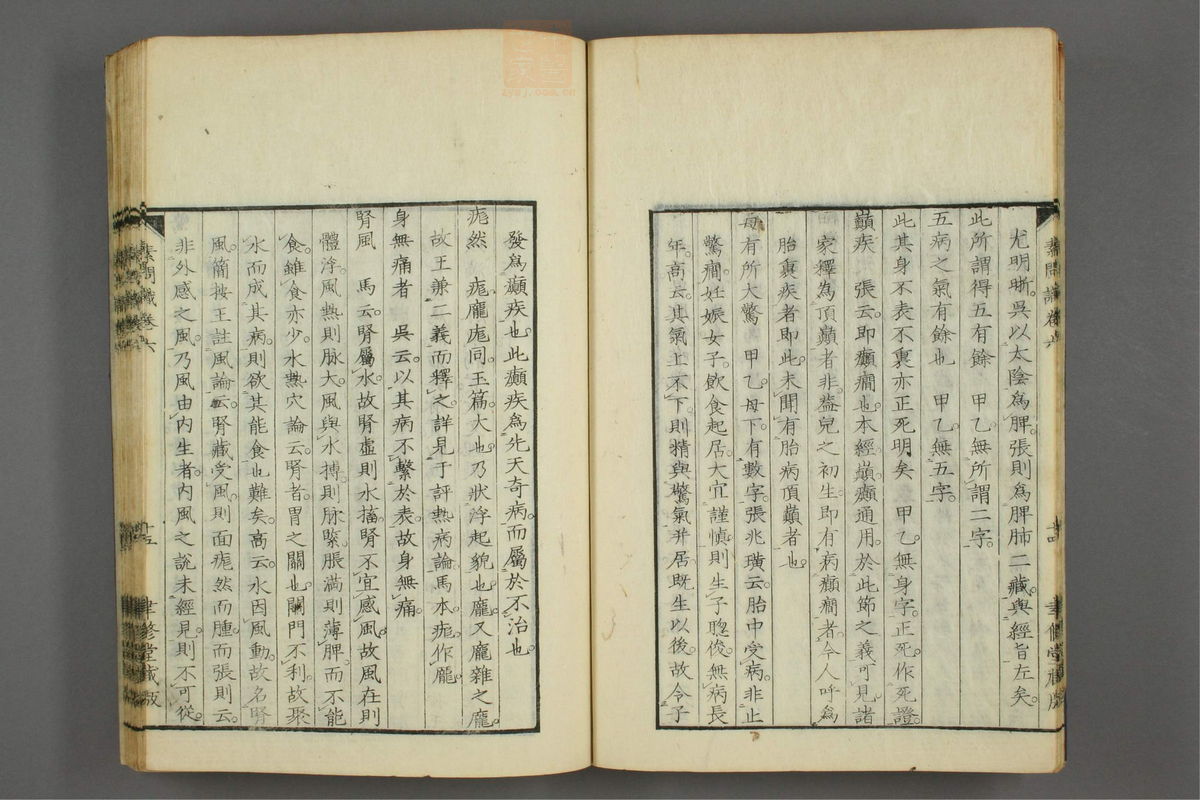 尤明晰。吳以太陰爲脾。張則爲脾肺二藏。與經旨左矣。
此所謂得五有餘　甲乙無所謂二字。
五病之氣有餘也　甲乙無五字。
此其身不表不裏亦正死明矣　甲乙無身字。正死作死證。
巓疾　張云。即癲癎也。本經巓癲通用。於此節之義可見。諸
家釋爲頂巓者非。蓋兒之初生。即有病癲癎者。今人呼爲
胎裏疾者即此。未聞有胎病頂巓者也。
母有所大驚　甲乙母下有數字。張兆璜云。胎中受病。非止
驚癎。妊娠女子。飲食起居。大宜謹愼。則生子聰俊。無病長
年。高云。其氣上不下。則精與驚氣并居。既生以後。故令子
發爲癲疾也。此癲疾爲先天奇病。而屬於不治也。
痝然　痝龐庬同。玉篇。大也。乃狀浮起貌也。龐。又龐雜之龐。
故王兼二義而釋之。詳見于評熱病論。馬本。痝作龐。
身無痛者　吳云。以其病不繫於表。故身無痛。
腎風　馬云。腎屬水。故腎虛則水搐。腎不宜感風。故風在則
體浮。風熱則脉大。風與水搏。則脉緊脹滿則薄脾。而不能
食。雖食亦少。水熱穴論云。腎者。胃之關也。關門不利。故聚
水而成其病。則欲其能食也難矣。高云。水因風動。故名腎
風。簡按王註風論云。腎藏受風。則面痝然而腫。而張則云。
非外感之風。乃風由内生者。内風之說未經見。則不可從。
素問識卷六
十四
聿修堂藏版
素問識卷六
十五
聿修堂藏版